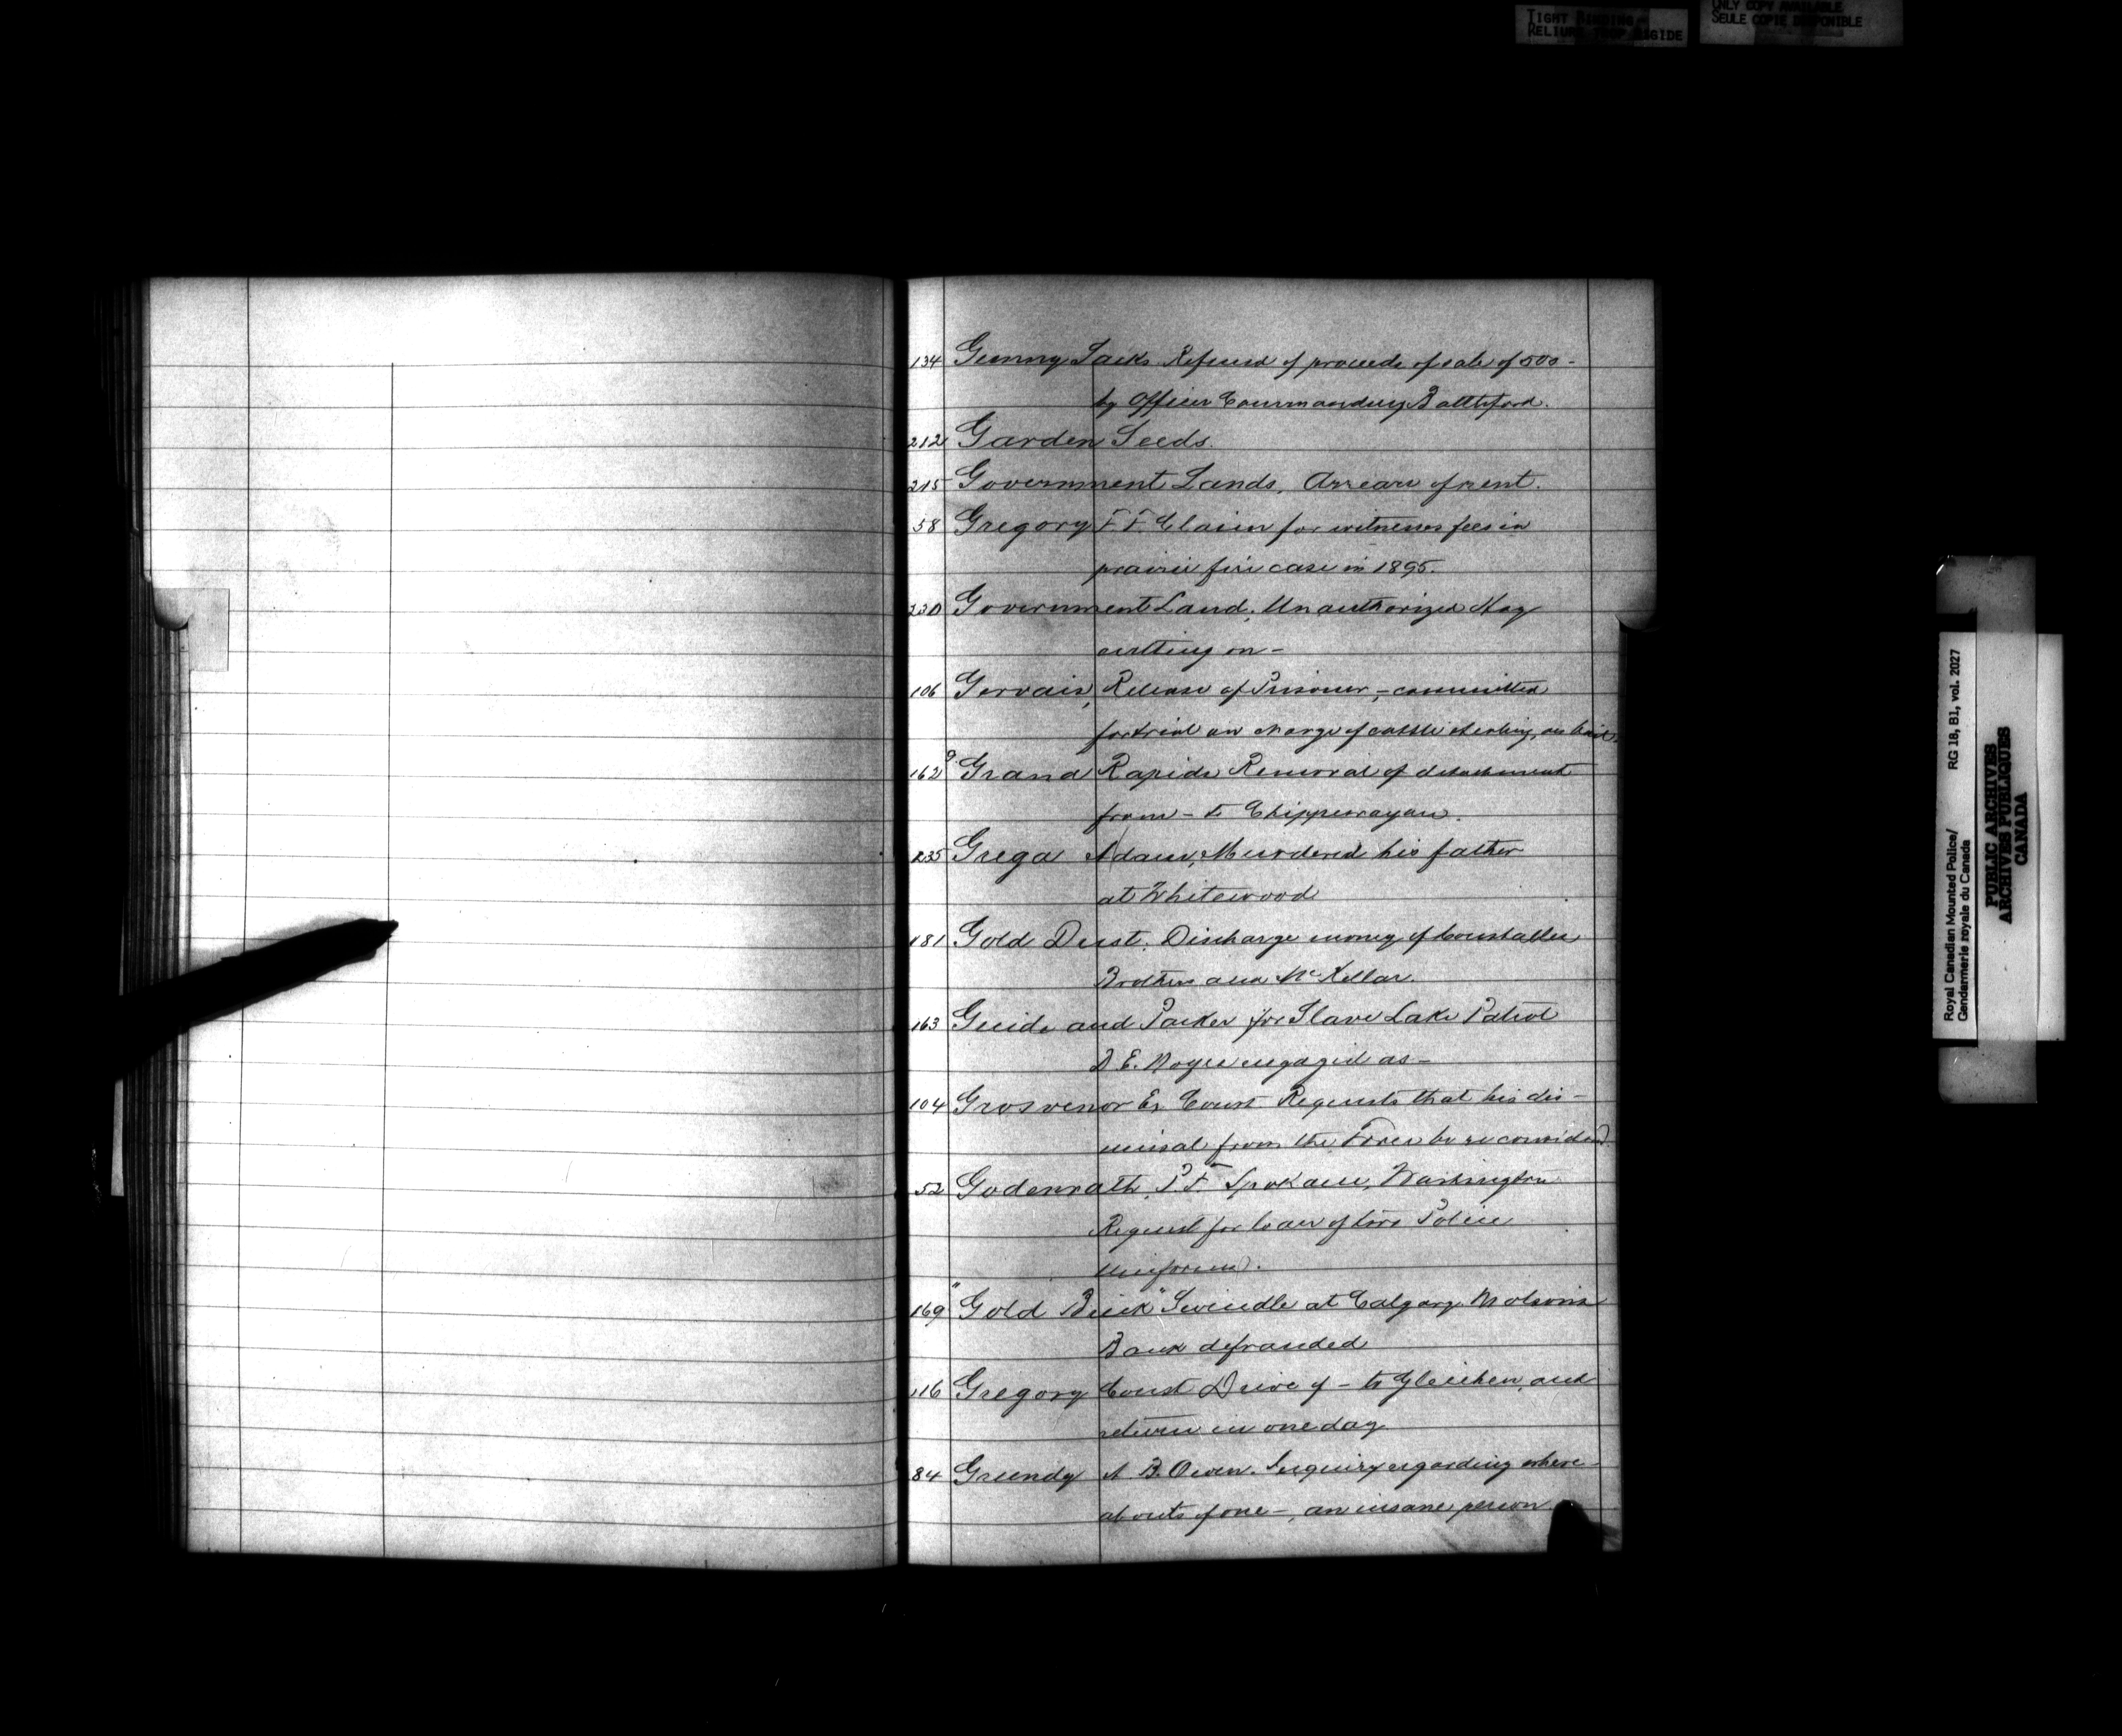 TIGHT BINDING
RELIURE TROP RIGIDE
ONLY COPY AVAILABLE
SEULE COPIE DISPONIBLE
134 Gunny Sacks Refund of proceeds of sale of 500 -
by Officer Commanding Battleford.
212 Garden Seeds.
215 Government Lands, Arrears of rent.
58 Gregory F. F. Claim for witness fees in
prairie fire case in 1895.
230 Government Land, Unauthorized Hay
cutting on -
106 Gervais, Release of Prisoner, - committed
for trial on charge of cattle stealing, on bail.
162 Grand Rapids Removal of detachment
from - to Chippewayan.
235 Grega Adam, Murdered his father
at Whitewood
181 Gold Dust. Discharge money of Constables
Brothers and McKellar.
163 Guide and Packer for Slave Lake Patrol
D E. Noyes engaged as -
104 Grosvenor Ex Const Requests that his dis -
missal from the Force be reconsidered
52 Godenrath, P. F. Spokane, Washington
Request for loan of two Police
Uniforms.
169 "Gold Brick" Swindle at Calgary. Molson's
Bank defrauded
116 Gregory Const Drive of - to Gleichen, and
return in one day
84 Grundy A B. Owen. Inquiry regarding where -
abouts of one -, an insane person
Royal Canadian Mounted Police/ RG 18, B1, vol. 2027
Gendarmerie royale du Canada
PUBLIC ARCHIVES
ARCHIVES PUBLIQUES
CANADA